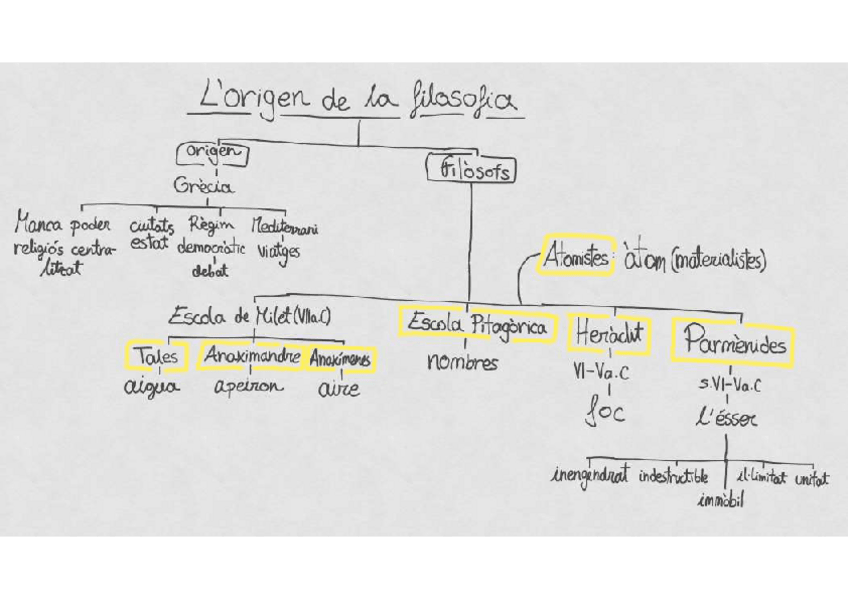 L'origen de la filosofia
origen
Filòsofs
Grècia
Manca poder
religiós centra-
litzat
ciutats
estat
Règim
democràtic
debat
Mediterrani
viatges
Atomistes: àtom (materialistes)
Escola de Milet (VIIa.C)
Escola Pitagòrica
nombres
Heràclit
VI-Va.C
foc
Parmènides
s.VI-Va.C
l'ésser
Tales
aigua
Anaximandre
apeiron
Anaxímenes
aire
inengendrat
indestructible
immòbil
il·limitat
unitat